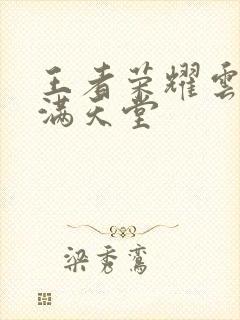 王者荣耀雲
满天堂
梁秀鸾